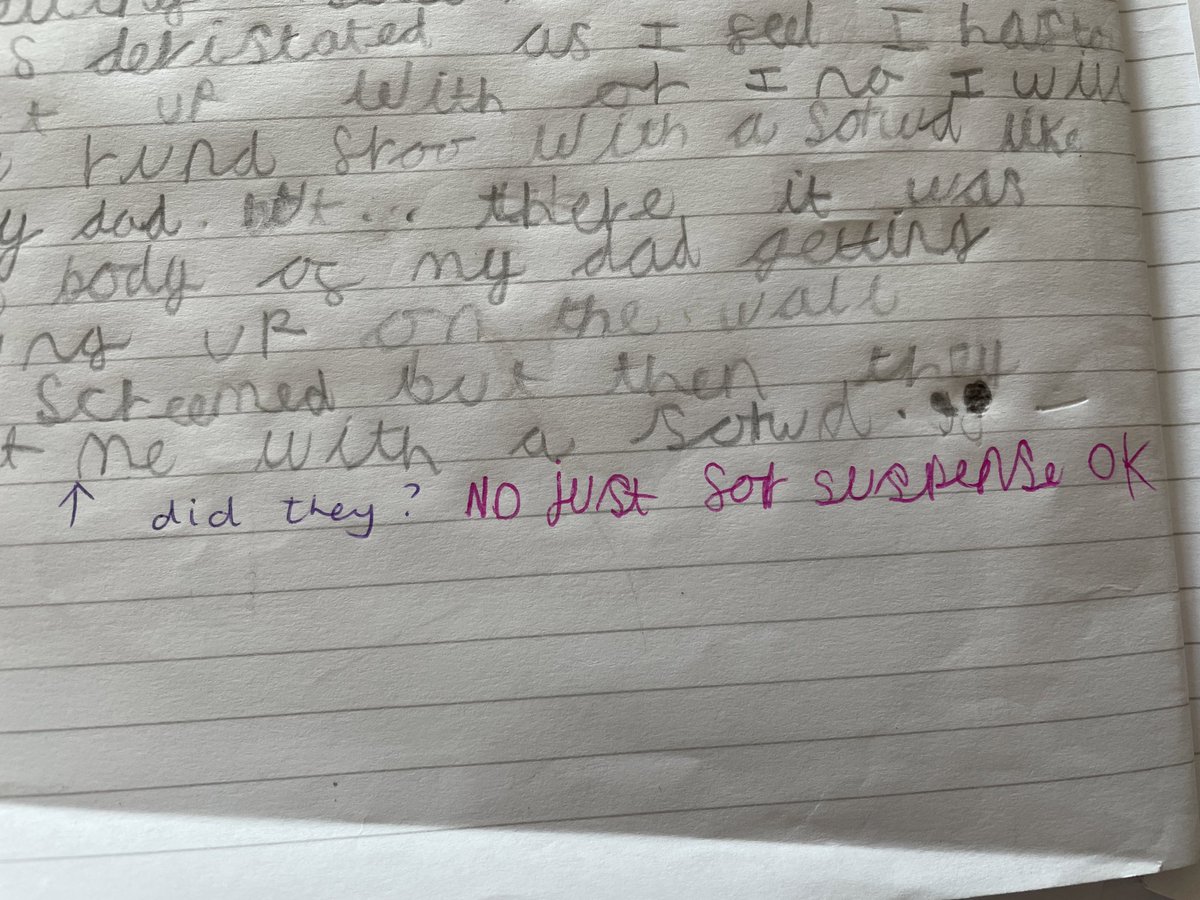 s devistated as I feel I hasto
t up with or I no I will
rund froo with a sorwd like
y dad. but... there it was
body of my dad getting
ng up on the wall
screemed but then they
t me with a sorwd.
↑ did they? NO just for suspense OK